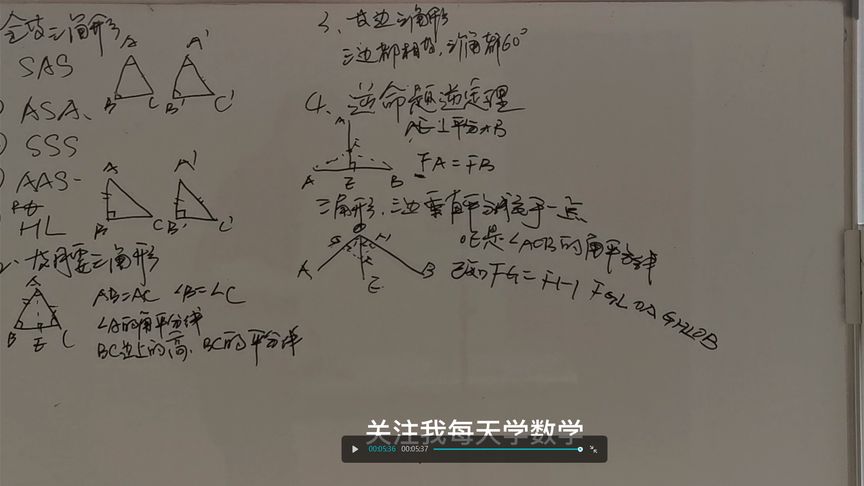 全等三角形
SAS
ASA、
SSS
AAS
HL
A A'
B C B' C'
A A'
B C B' C'
2、等腰三角形
A
B E C
AB=AC ∠B=∠C
∠A的角平分线
BC边上的高、BC的平分线
3、等边三角形
三边都相等，三角都60°
4、逆命题逆定理
A E B
FA=FB
三角形，三边垂直平分线交于一点
A E B
OE是∠AOB的角平分线
关注我每天学数学
00:05:36 00:05:37